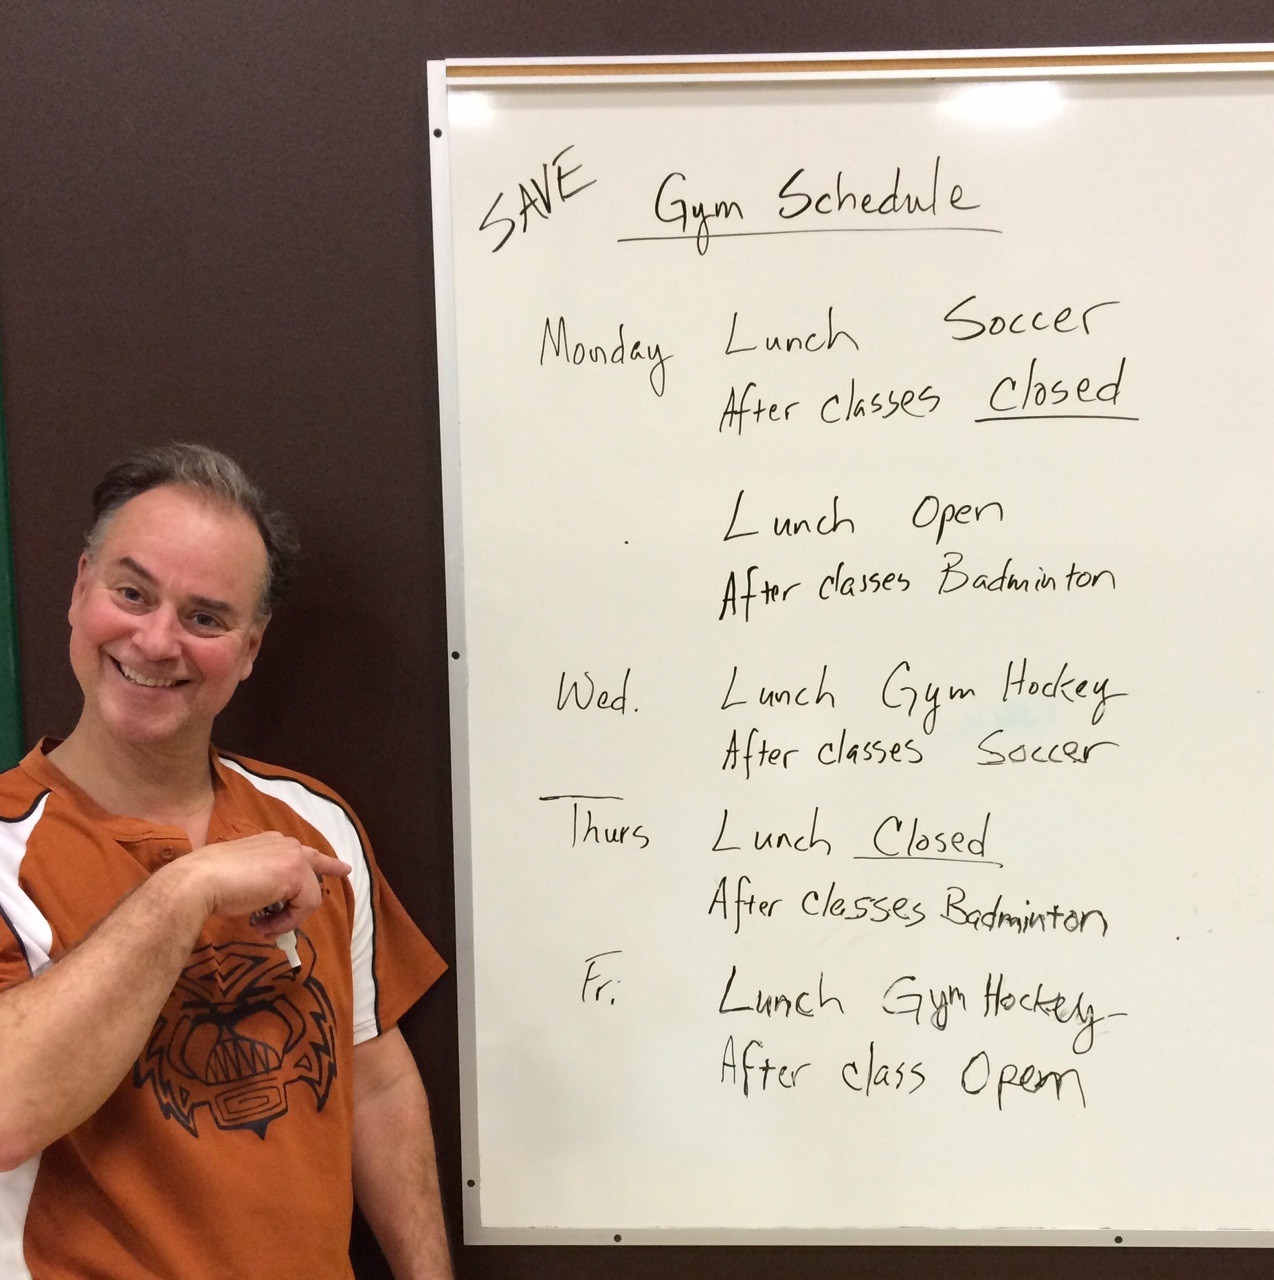 SAVE Gym Schedule
Monday Lunch Soccer
After classes closed
Lunch Open
After classes Badminton
Wed. Lunch Gym Hockey
After classes Soccer
Thurs Lunch Closed
After classes Badminton
Fri. Lunch Gym Hockey
After class Open